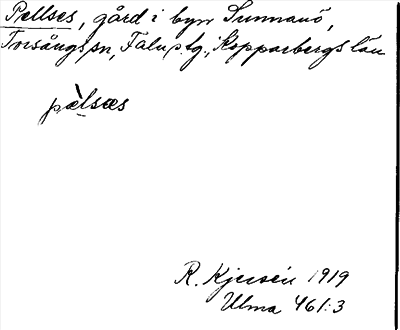 Pellses, gård i byn Sunnanö,
Torsångs sn, Falu p.tg., Kopparbergs län
pæ̀lsæs
R. Kjersén 1919
Ulma 461:3